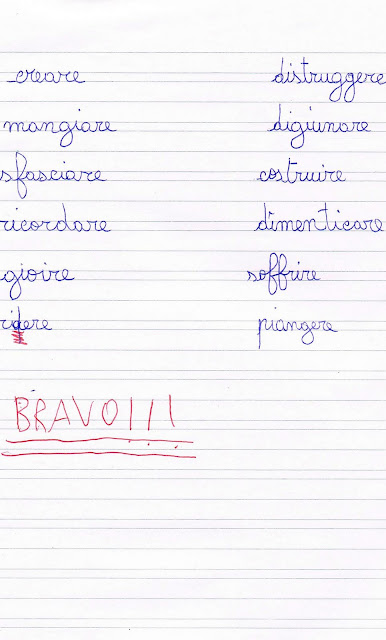 creare distruggere
mangiare digiunare
sfasciare costruire
ricordare dimenticare
gioire soffrire
ridere piangere
BRAVO!!!